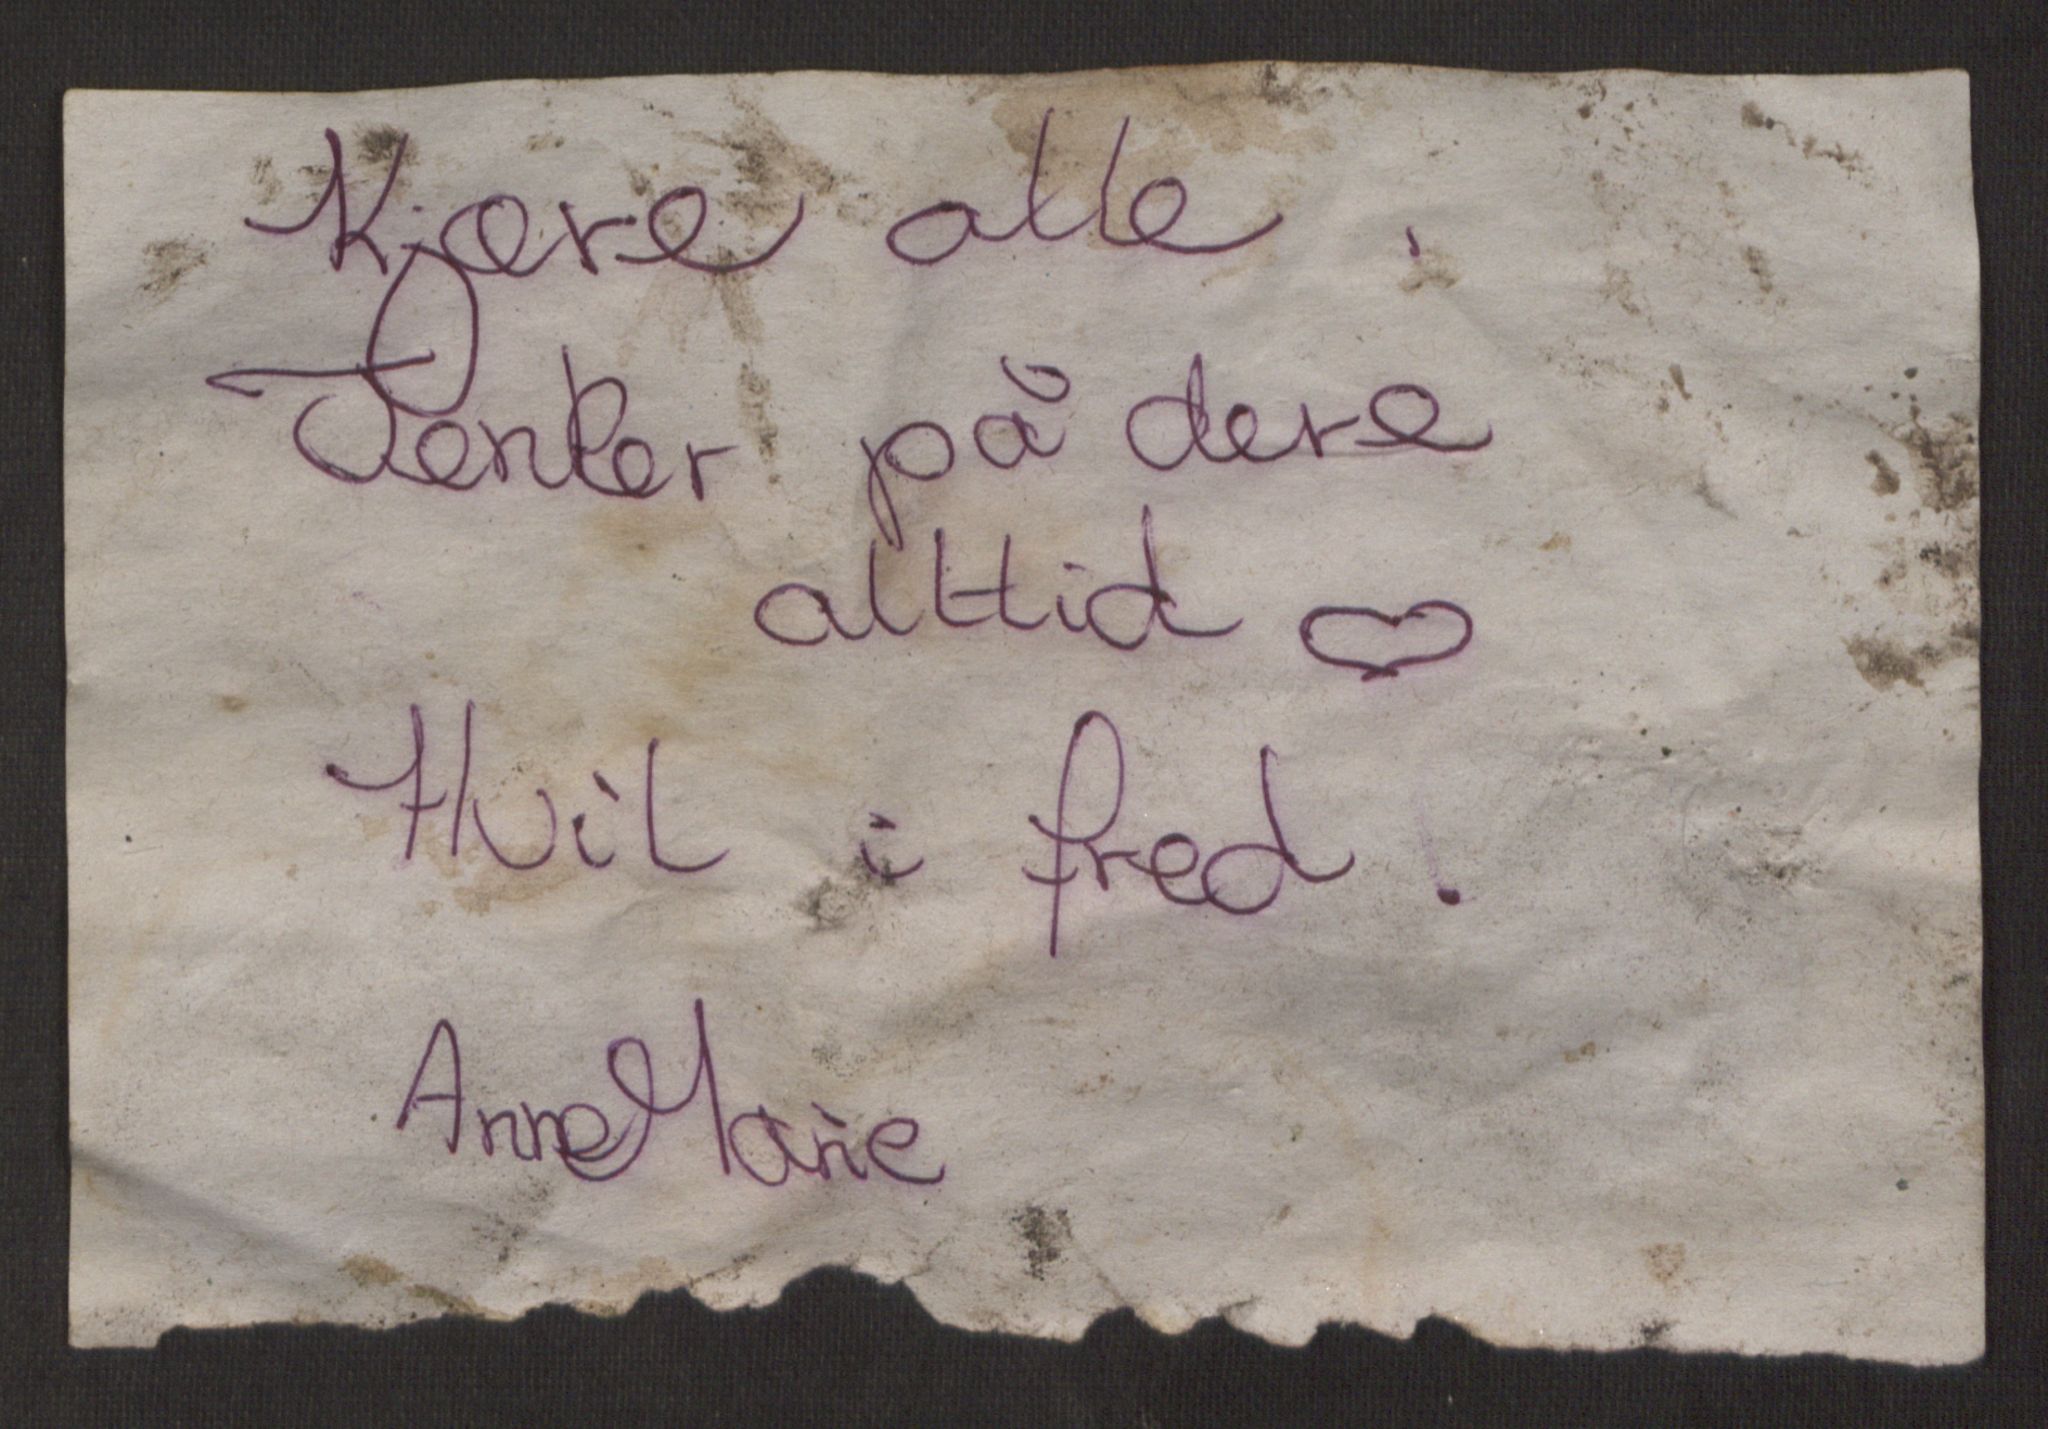 Kjære alle .
Tenker på dere
alltid ♡
Hvil i fred !
Anne Marie